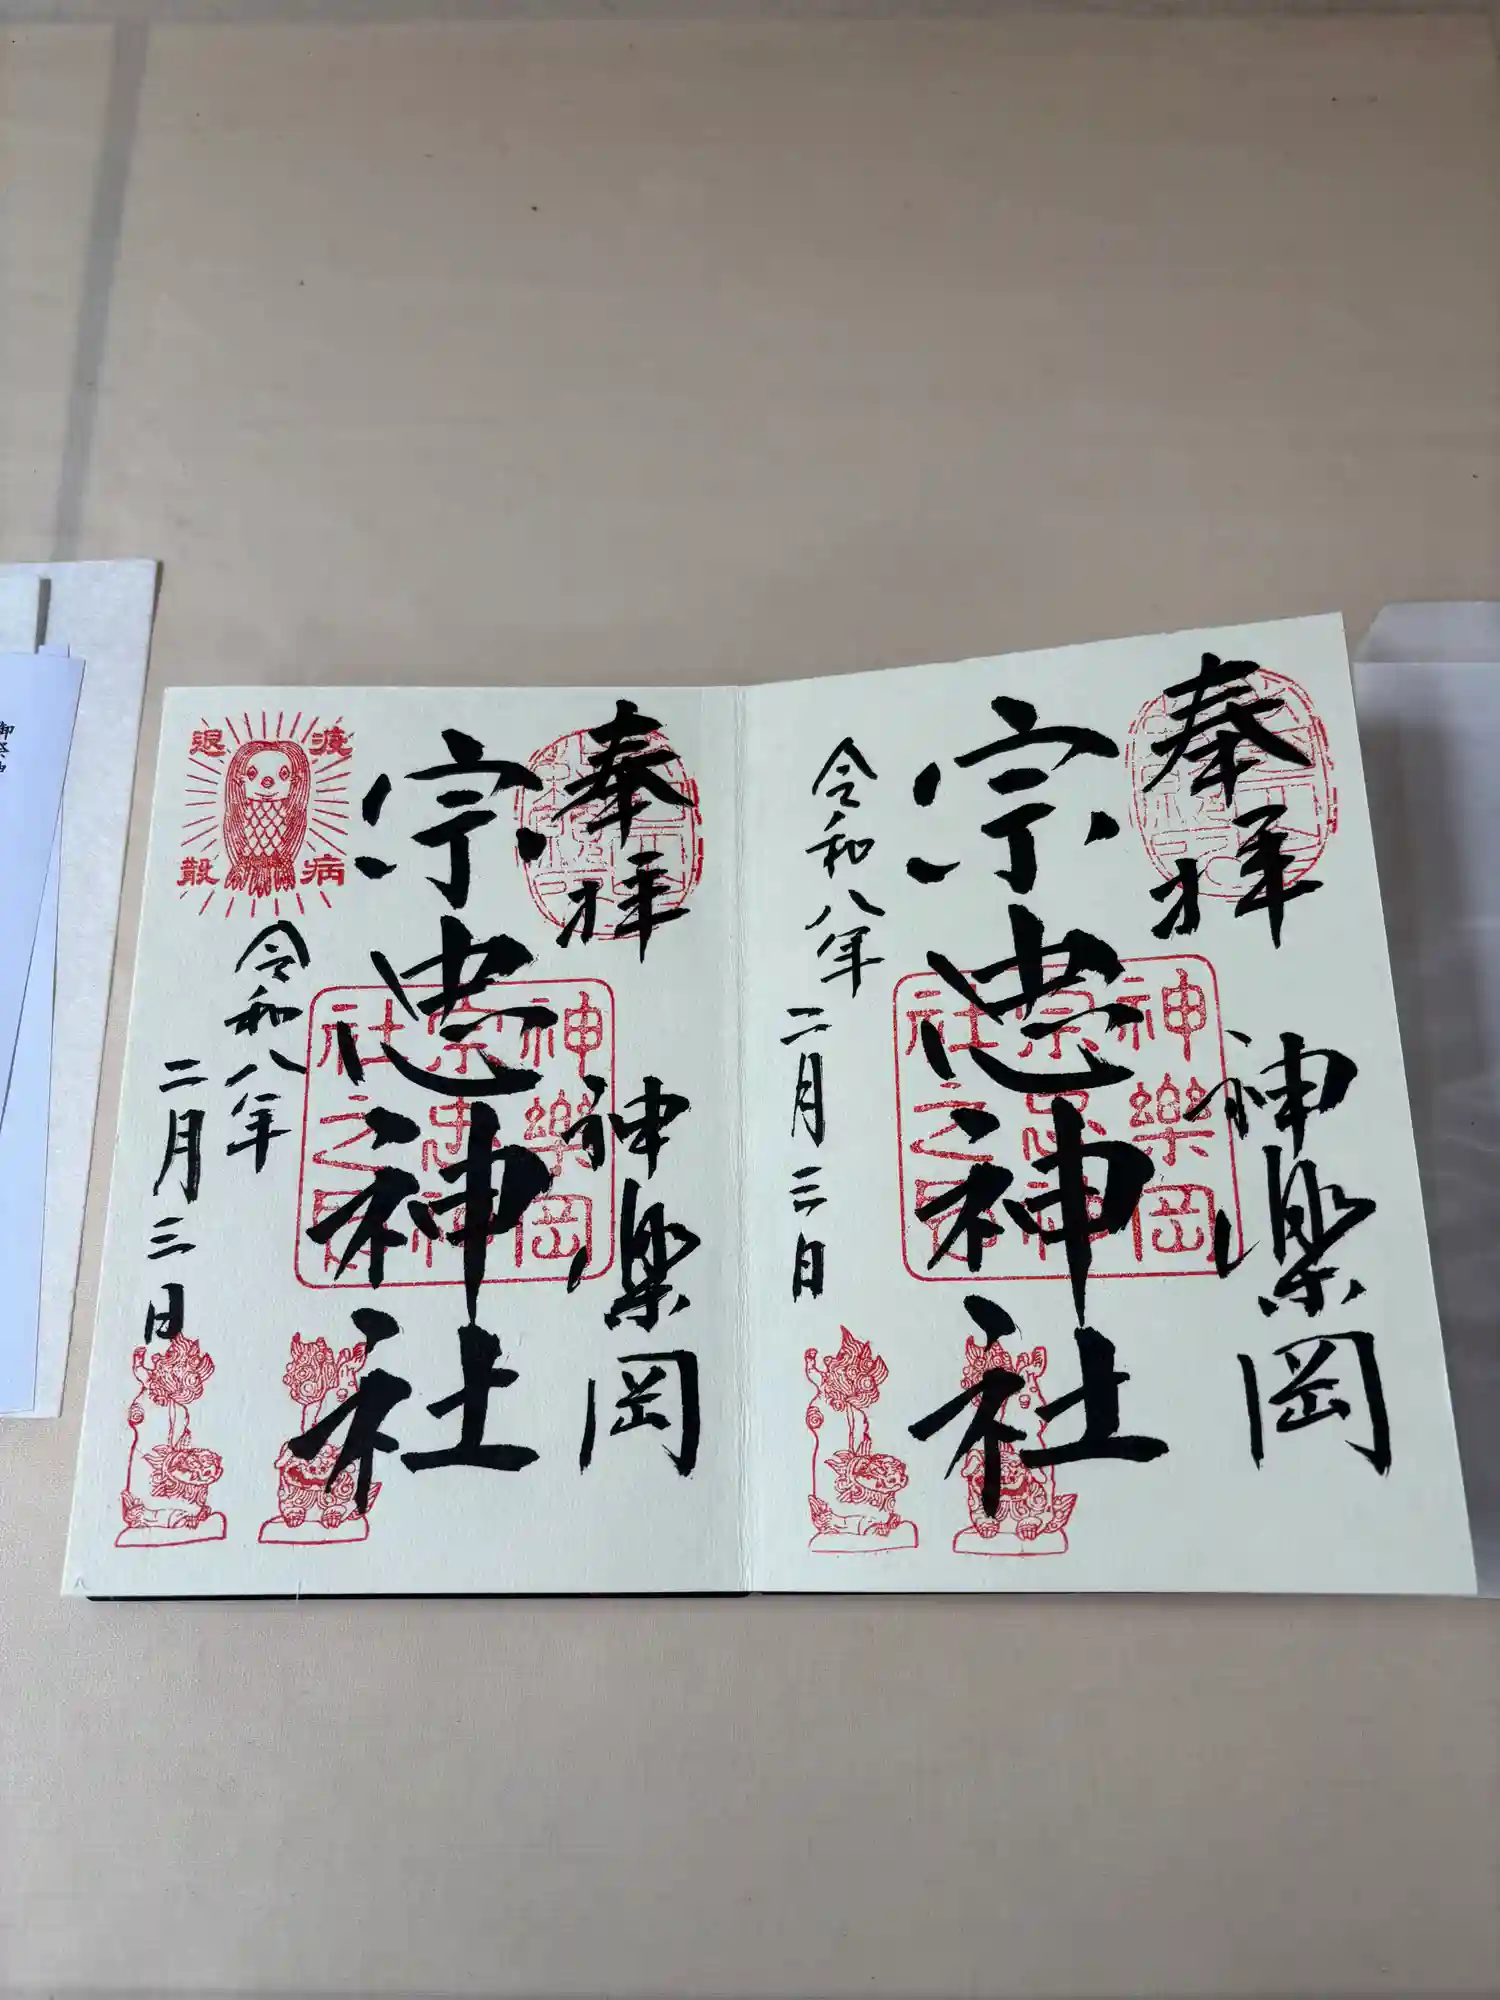 奉拝
神楽岡
宗忠神社
令和八年
二月三日
神樂岡
宗忠神
社之印
奉拝
神楽岡
宗忠神社
令和八年
二月三日
神樂岡
宗忠神
社之印
疫病
退散